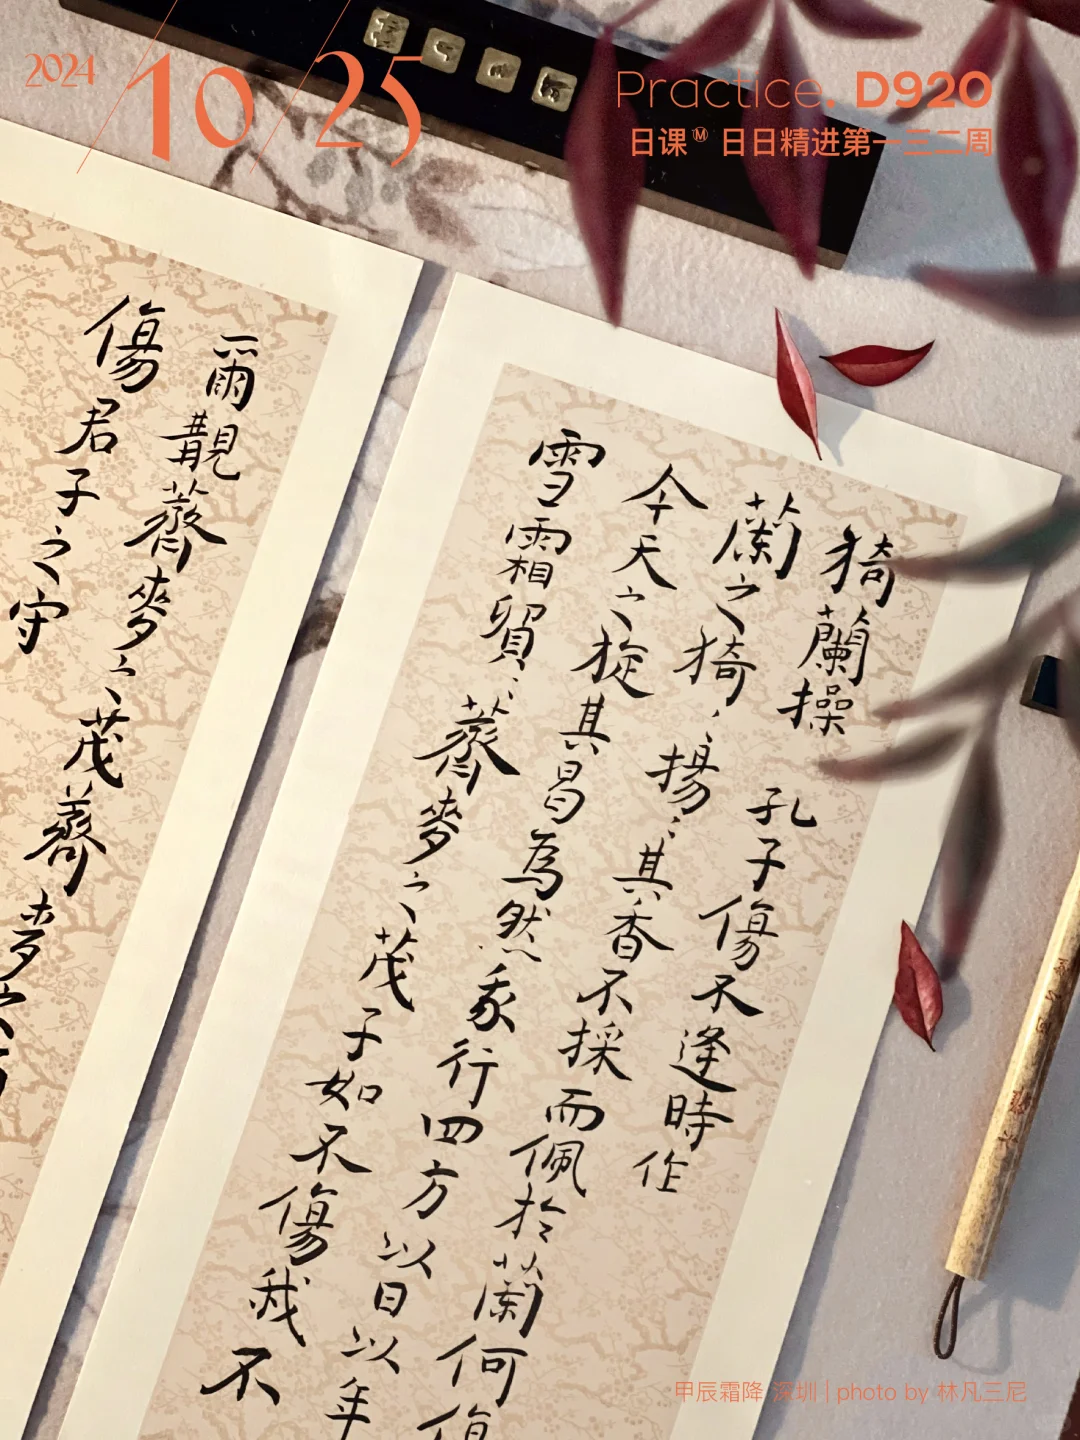 2024 10/25
Practice. D920
日课 日日精进第一三二周
猗蘭操 孔子傷不逢時作
蘭之猗〻揚〻其香不採而佩於蘭何傷
今天之旋其曷為然我行四方以日以年
雪霜貿〻薺麥之茂子如不傷我不
爾覯薺麥〻之茂薺麥之有
傷君子之守
甲辰霜降 深圳 | photo by 林凡三尼